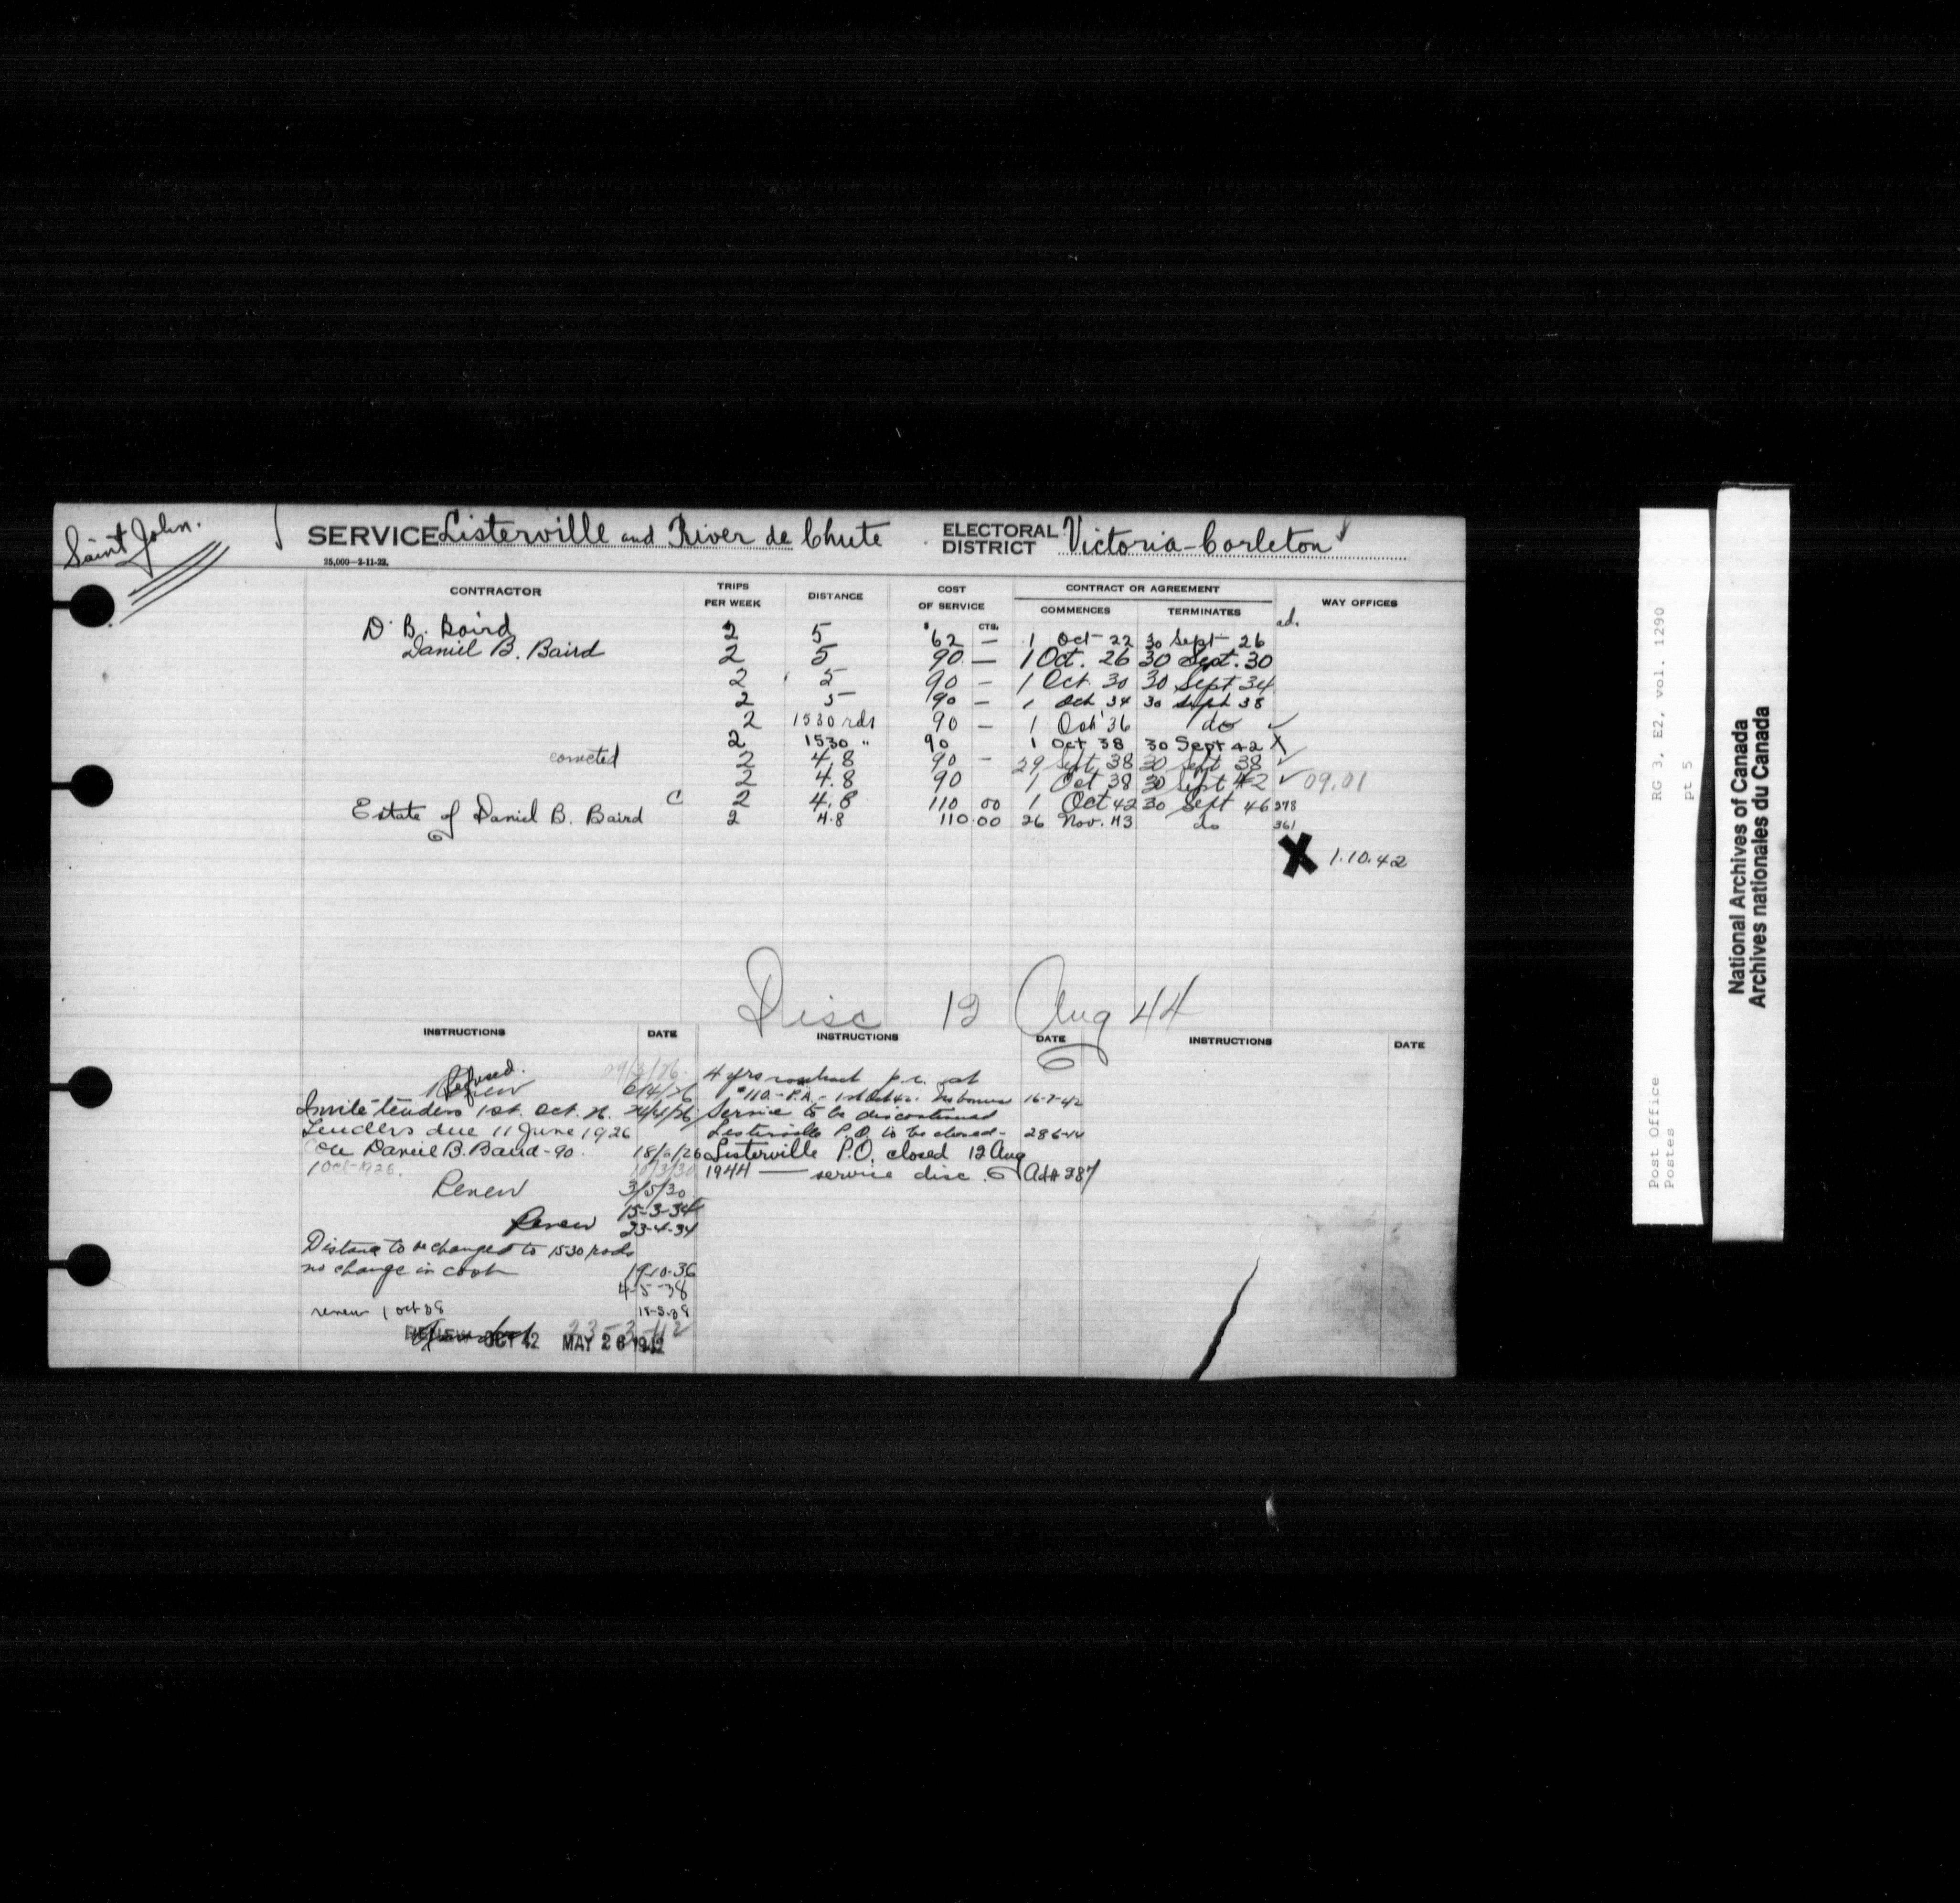 Saint John.
SERVICE Listerville and River de Chute
ELECTORAL DISTRICT Victoria-Carleton
25,000—2-11-22.
CONTRACTOR TRIPS PER WEEK DISTANCE COST OF SERVICE CONTRACT OR AGREEMENT WAY OFFICES
$ CTS. COMMENCES TERMINATES
ad.
D. B. Baird 2 5 62 — 1 Oct 22 30 Sept 26
Daniel B. Baird 2 5 90 — 1 Oct. 26 30 Sept. 30
2 5 90 — 1 Oct 30 30 Sept 34
2 5 90 — 1 Oct 34 30 Sept 38
2 1530 rds 90 — 1 Oct 36 do ✓
2 1530 " 90 1 Oct 38 30 Sept 42 X
corrected 2 4.8 90 — 29 Sept 38 30 Sept 38 ✓
2 4.8 90 1 Oct 38 30 Sept 42 ✓ 09.01
C 2 4.8 110 00 1 Oct 42 30 Sept 46 278
Estate of Daniel B. Baird 2 4.8 110.00 26 Nov. 43 do 361
X 1.10.42
Disc 12 Aug 44
INSTRUCTIONS DATE INSTRUCTIONS DATE INSTRUCTIONS DATE
Refused.
Renew 6/4/26
Invite tenders 1st. Oct. 26.
Tenders due 11 June 1926
Daniel B. Baird - 90. 18/6/26
1 Oct-1926. 10/3/30
Renew 3/5/30
15-3-34
Renew 23-4-34
Distance to be changed to 1530 rods
no change in cost 19-10-36
4-5-38
renew 1 oct 38 18-5-38
RENEW OCT 42 23-3-42
MAY 26 1942
4 yrs contract p.c. at
$110.- P.A. - 1st Oct 42. No bonus 16-7-42
Service to be discontinued
Listerville P.O. to be closed -
Listerville P.O. closed 12 Aug
1944 — service disc.
Post Office RG 3, E2, vol. 1290
Postes pt 5
National Archives of Canada
Archives nationales du Canada